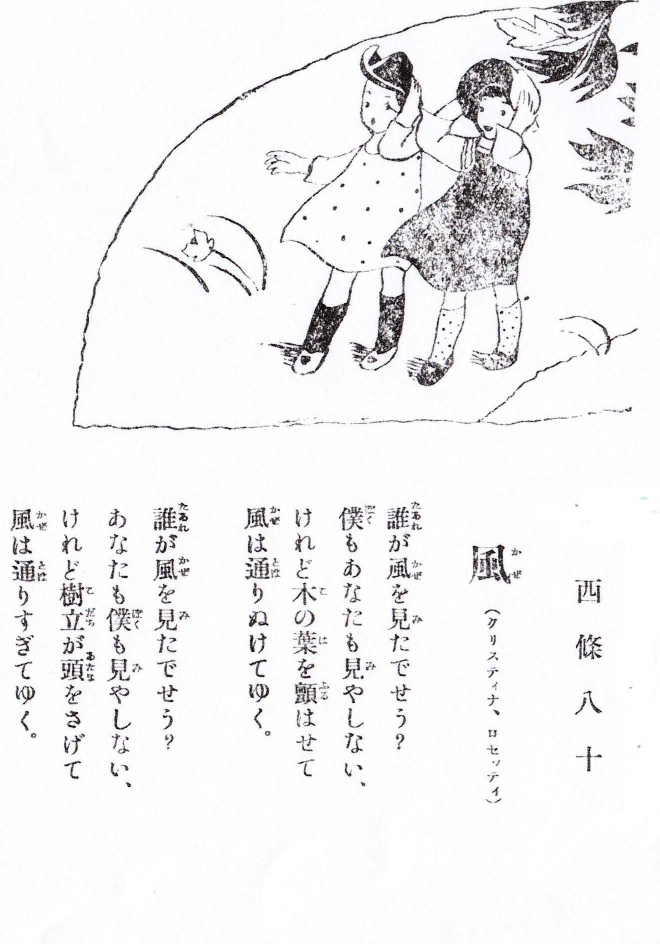 西條八十
風
（クリスティナ、ロセッティ）
誰が風を見たでせう？
僕もあなたも見やしない、
けれど木の葉を顫はせて
風は通りぬけてゆく。
誰が風を見たでせう？
あなたも僕も見やしない、
けれど樹立が頭をさげて
風は通りすぎてゆく。